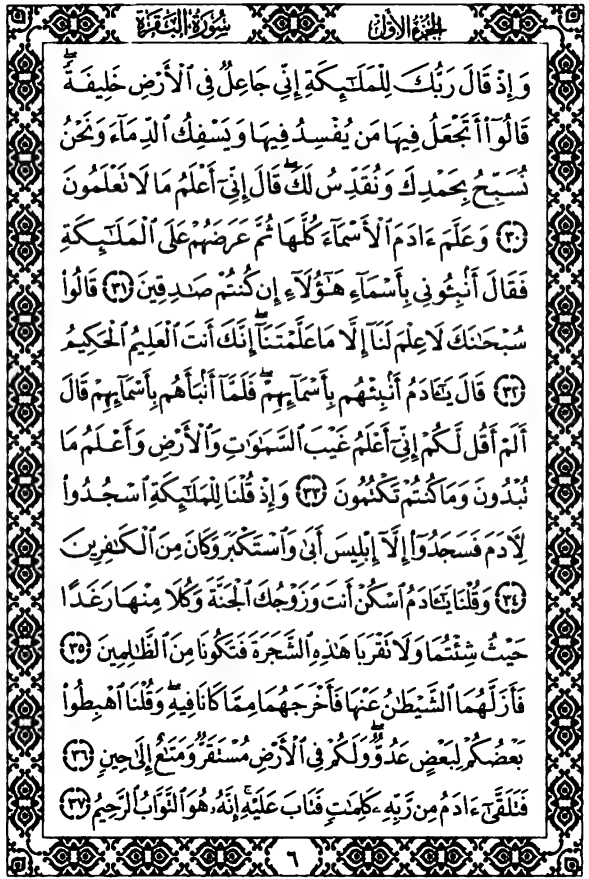 الجزء الأول سورة البقرة
وَإِذْ قَالَ رَبُّكَ لِلْمَلَٰٓئِكَةِ إِنِّي جَاعِلٌ فِي ٱلْأَرْضِ خَلِيفَةًۖ
قَالُوٓا۟ أَتَجْعَلُ فِيهَا مَن يُفْسِدُ فِيهَا وَيَسْفِكُ ٱلدِّمَآءَ وَنَحْنُ
نُسَبِّحُ بِحَمْدِكَ وَنُقَدِّسُ لَكَۖ قَالَ إِنِّيٓ أَعْلَمُ مَا لَا تَعْلَمُونَ
﴿٣٠﴾ وَعَلَّمَ ءَادَمَ ٱلْأَسْمَآءَ كُلَّهَا ثُمَّ عَرَضَهُمْ عَلَى ٱلْمَلَٰٓئِكَةِ
فَقَالَ أَنۢبِـُٔونِي بِأَسْمَآءِ هَٰٓؤُلَآءِ إِن كُنتُمْ صَٰدِقِينَ ﴿٣١﴾ قَالُوا۟
سُبْحَٰنَكَ لَا عِلْمَ لَنَآ إِلَّا مَا عَلَّمْتَنَآۖ إِنَّكَ أَنتَ ٱلْعَلِيمُ ٱلْحَكِيمُ
﴿٣٢﴾ قَالَ يَٰٓـَٔادَمُ أَنۢبِئْهُم بِأَسْمَآئِهِمْۖ فَلَمَّآ أَنۢبَأَهُم بِأَسْمَآئِهِمْ قَالَ
أَلَمْ أَقُل لَّكُمْ إِنِّيٓ أَعْلَمُ غَيْبَ ٱلسَّمَٰوَٰتِ وَٱلْأَرْضِ وَأَعْلَمُ مَا
تُبْدُونَ وَمَا كُنتُمْ تَكْتُمُونَ ﴿٣٣﴾ وَإِذْ قُلْنَا لِلْمَلَٰٓئِكَةِ ٱسْجُدُوا۟
لِأَدَمَ فَسَجَدُوٓا۟ إِلَّآ إِبْلِيسَ أَبَىٰ وَٱسْتَكْبَرَ وَكَانَ مِنَ ٱلْكَٰفِرِينَ
﴿٣٤﴾ وَقُلْنَا يَٰٓـَٔادَمُ ٱسْكُنْ أَنتَ وَزَوْجُكَ ٱلْجَنَّةَ وَكُلَا مِنْهَا رَغَدًا
حَيْثُ شِئْتُمَا وَلَا تَقْرَبَا هَٰذِهِ ٱلشَّجَرَةَ فَتَكُونَا مِنَ ٱلظَّٰلِمِينَ ﴿٣٥﴾
فَأَزَلَّهُمَا ٱلشَّيْطَٰنُ عَنْهَا فَأَخْرَجَهُمَا مِمَّا كَانَا فِيهِۖ وَقُلْنَا ٱهْبِطُوا۟
بَعْضُكُمْ لِبَعْضٍ عَدُوٌّۖ وَلَكُمْ فِي ٱلْأَرْضِ مُسْتَقَرٌّ وَمَتَٰعٌ إِلَىٰ حِينٍ ﴿٣٦﴾
فَتَلَقَّىٰٓ ءَادَمُ مِن رَّبِّهِۦ كَلِمَٰتٍ فَتَابَ عَلَيْهِۚ إِنَّهُۥ هُوَ ٱلتَّوَّابُ ٱلرَّحِيمُ ﴿٣٧﴾
٦